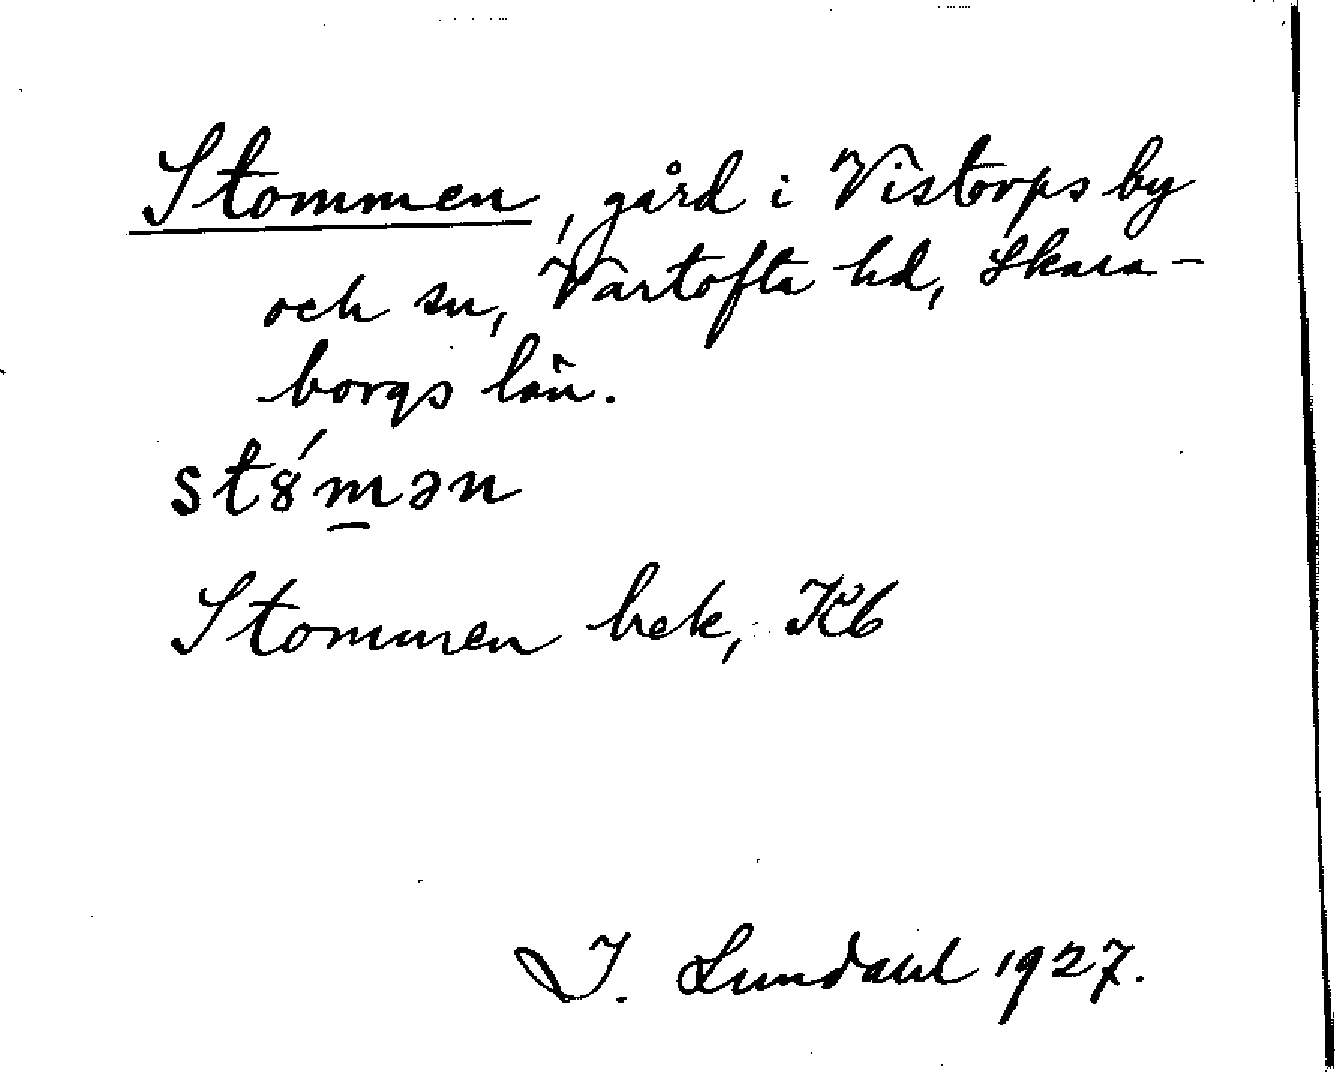 Stommen, gård i Vistorps by
och sn, Vartofta hd, Skara-
borgs län.
st8́m̲ən
Stommen bek, Kb
I. Lundahl 1927.